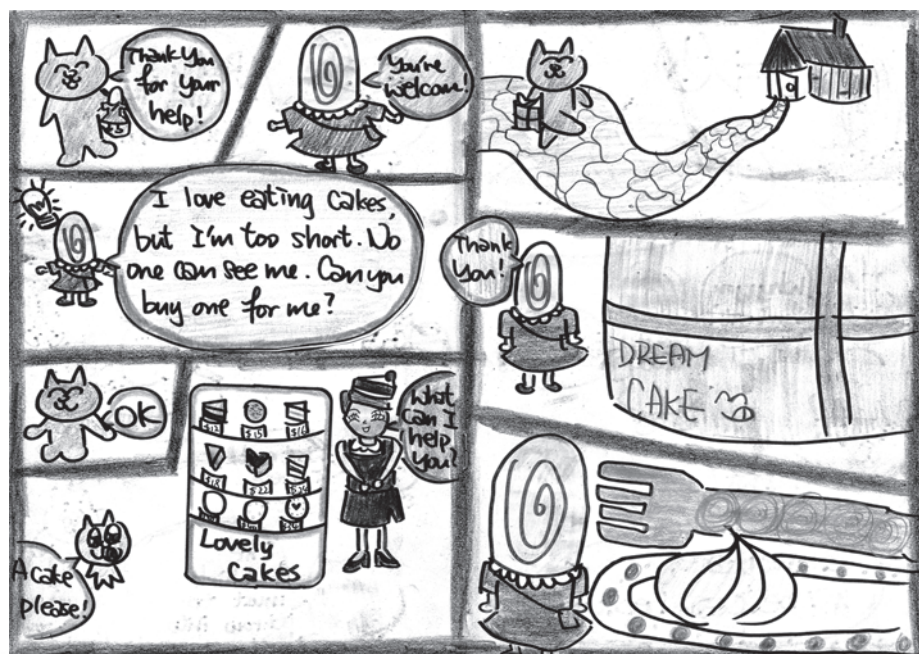 Thank You
for your
help!
You're
welcom!
I love eating cakes,
but I'm too short. No
one can see me. Can you
buy one for me?
OK
What
can I
help
you?
Lovely
Cakes
A cake
please!
Thank
You!
DREAM
CAKE